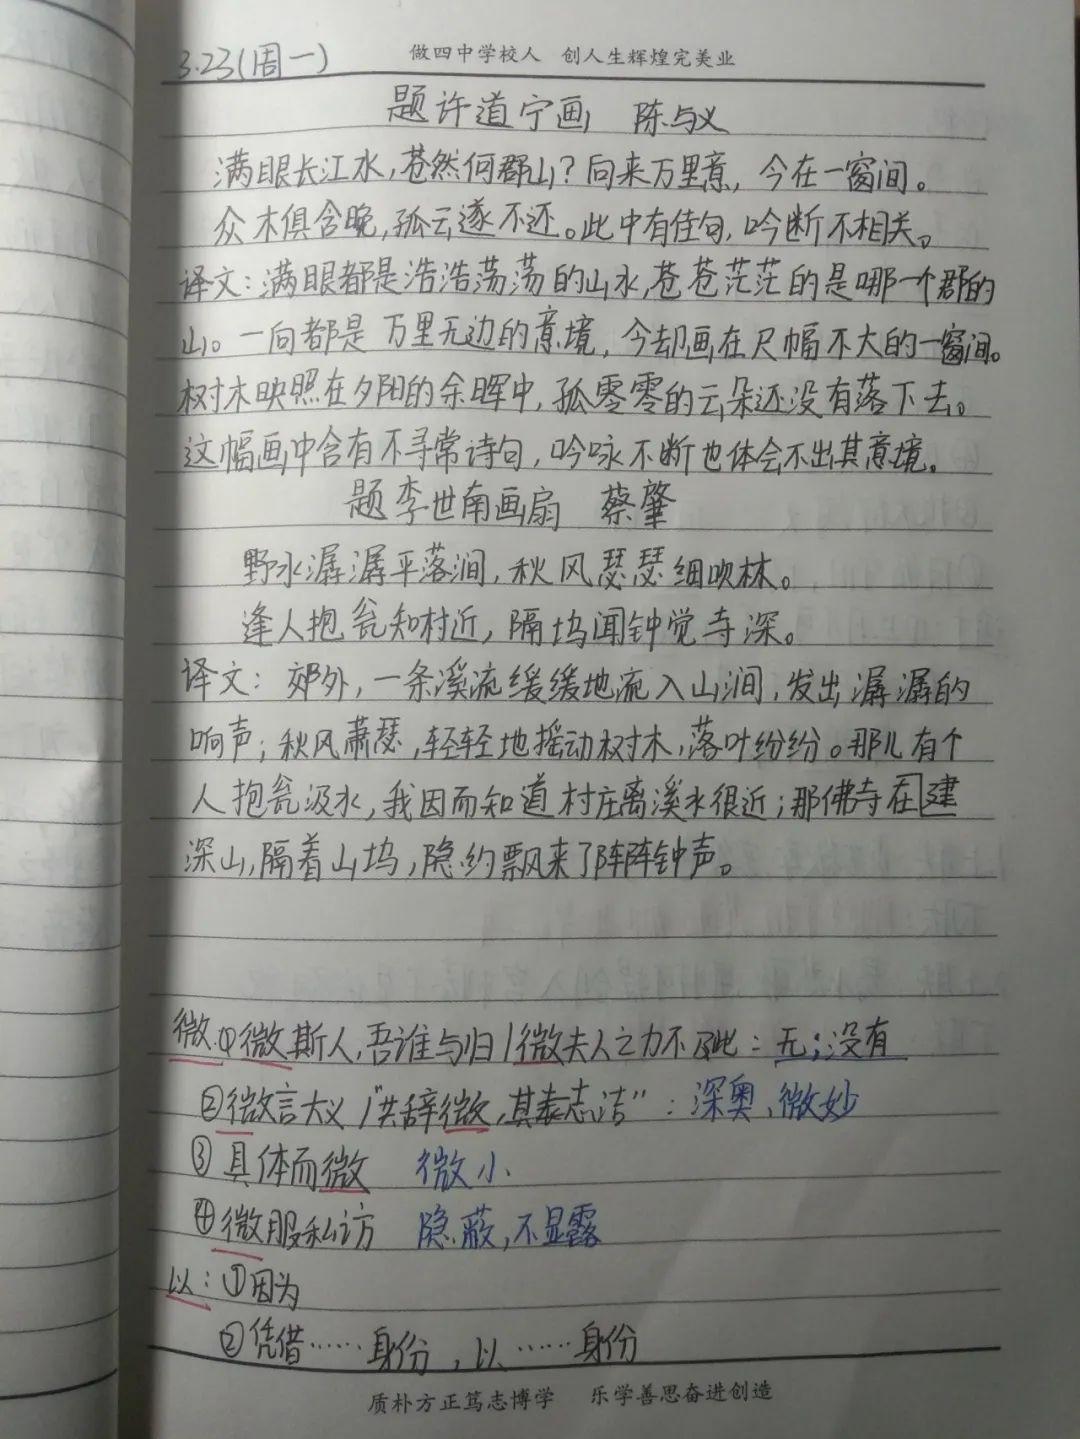 3.23(周一)
做四中学校人 创人生辉煌完美业
题许道宁画 陈与义
满眼长江水,苍然何郡山?向来万里意,今在一窗间。
众木俱含晚,孤云遂不还。此中有佳句,吟断不相关。
译文:满眼都是浩浩荡荡的山水,苍苍茫茫的是哪一个郡的
山。一向都是万里无边的意境,今却画在尺幅不大的一窗间。
树木映照在夕阳的余晖中,孤零零的云朵还没有落下去。
这幅画中含有不寻常诗句,吟咏不断也体会不出其意境。
题李世南画扇 蔡肇
野水潺潺平落涧,秋风瑟瑟细吹林。
逢人抱瓮知村近,隔坞闻钟觉寺深。
译文:郊外,一条溪流缓缓地流入山涧,发出潺潺的
响声;秋风萧瑟,轻轻地摇动树木,落叶纷纷。那儿有个
人抱瓮汲水,我因而知道村庄离溪水很近;那佛寺在建
深山,隔着山坞,隐约飘来了阵阵钟声。
微.①微斯人,吾谁与归/微夫人之力不及此:无;没有
②微言大义/"其辞微,其表志洁":深奥、微妙
③具体而微 微小
④微服私访 隐蔽,不显露
以:①因为
②凭借……身份,以……身份
质朴方正笃志博学 乐学善思奋进创造